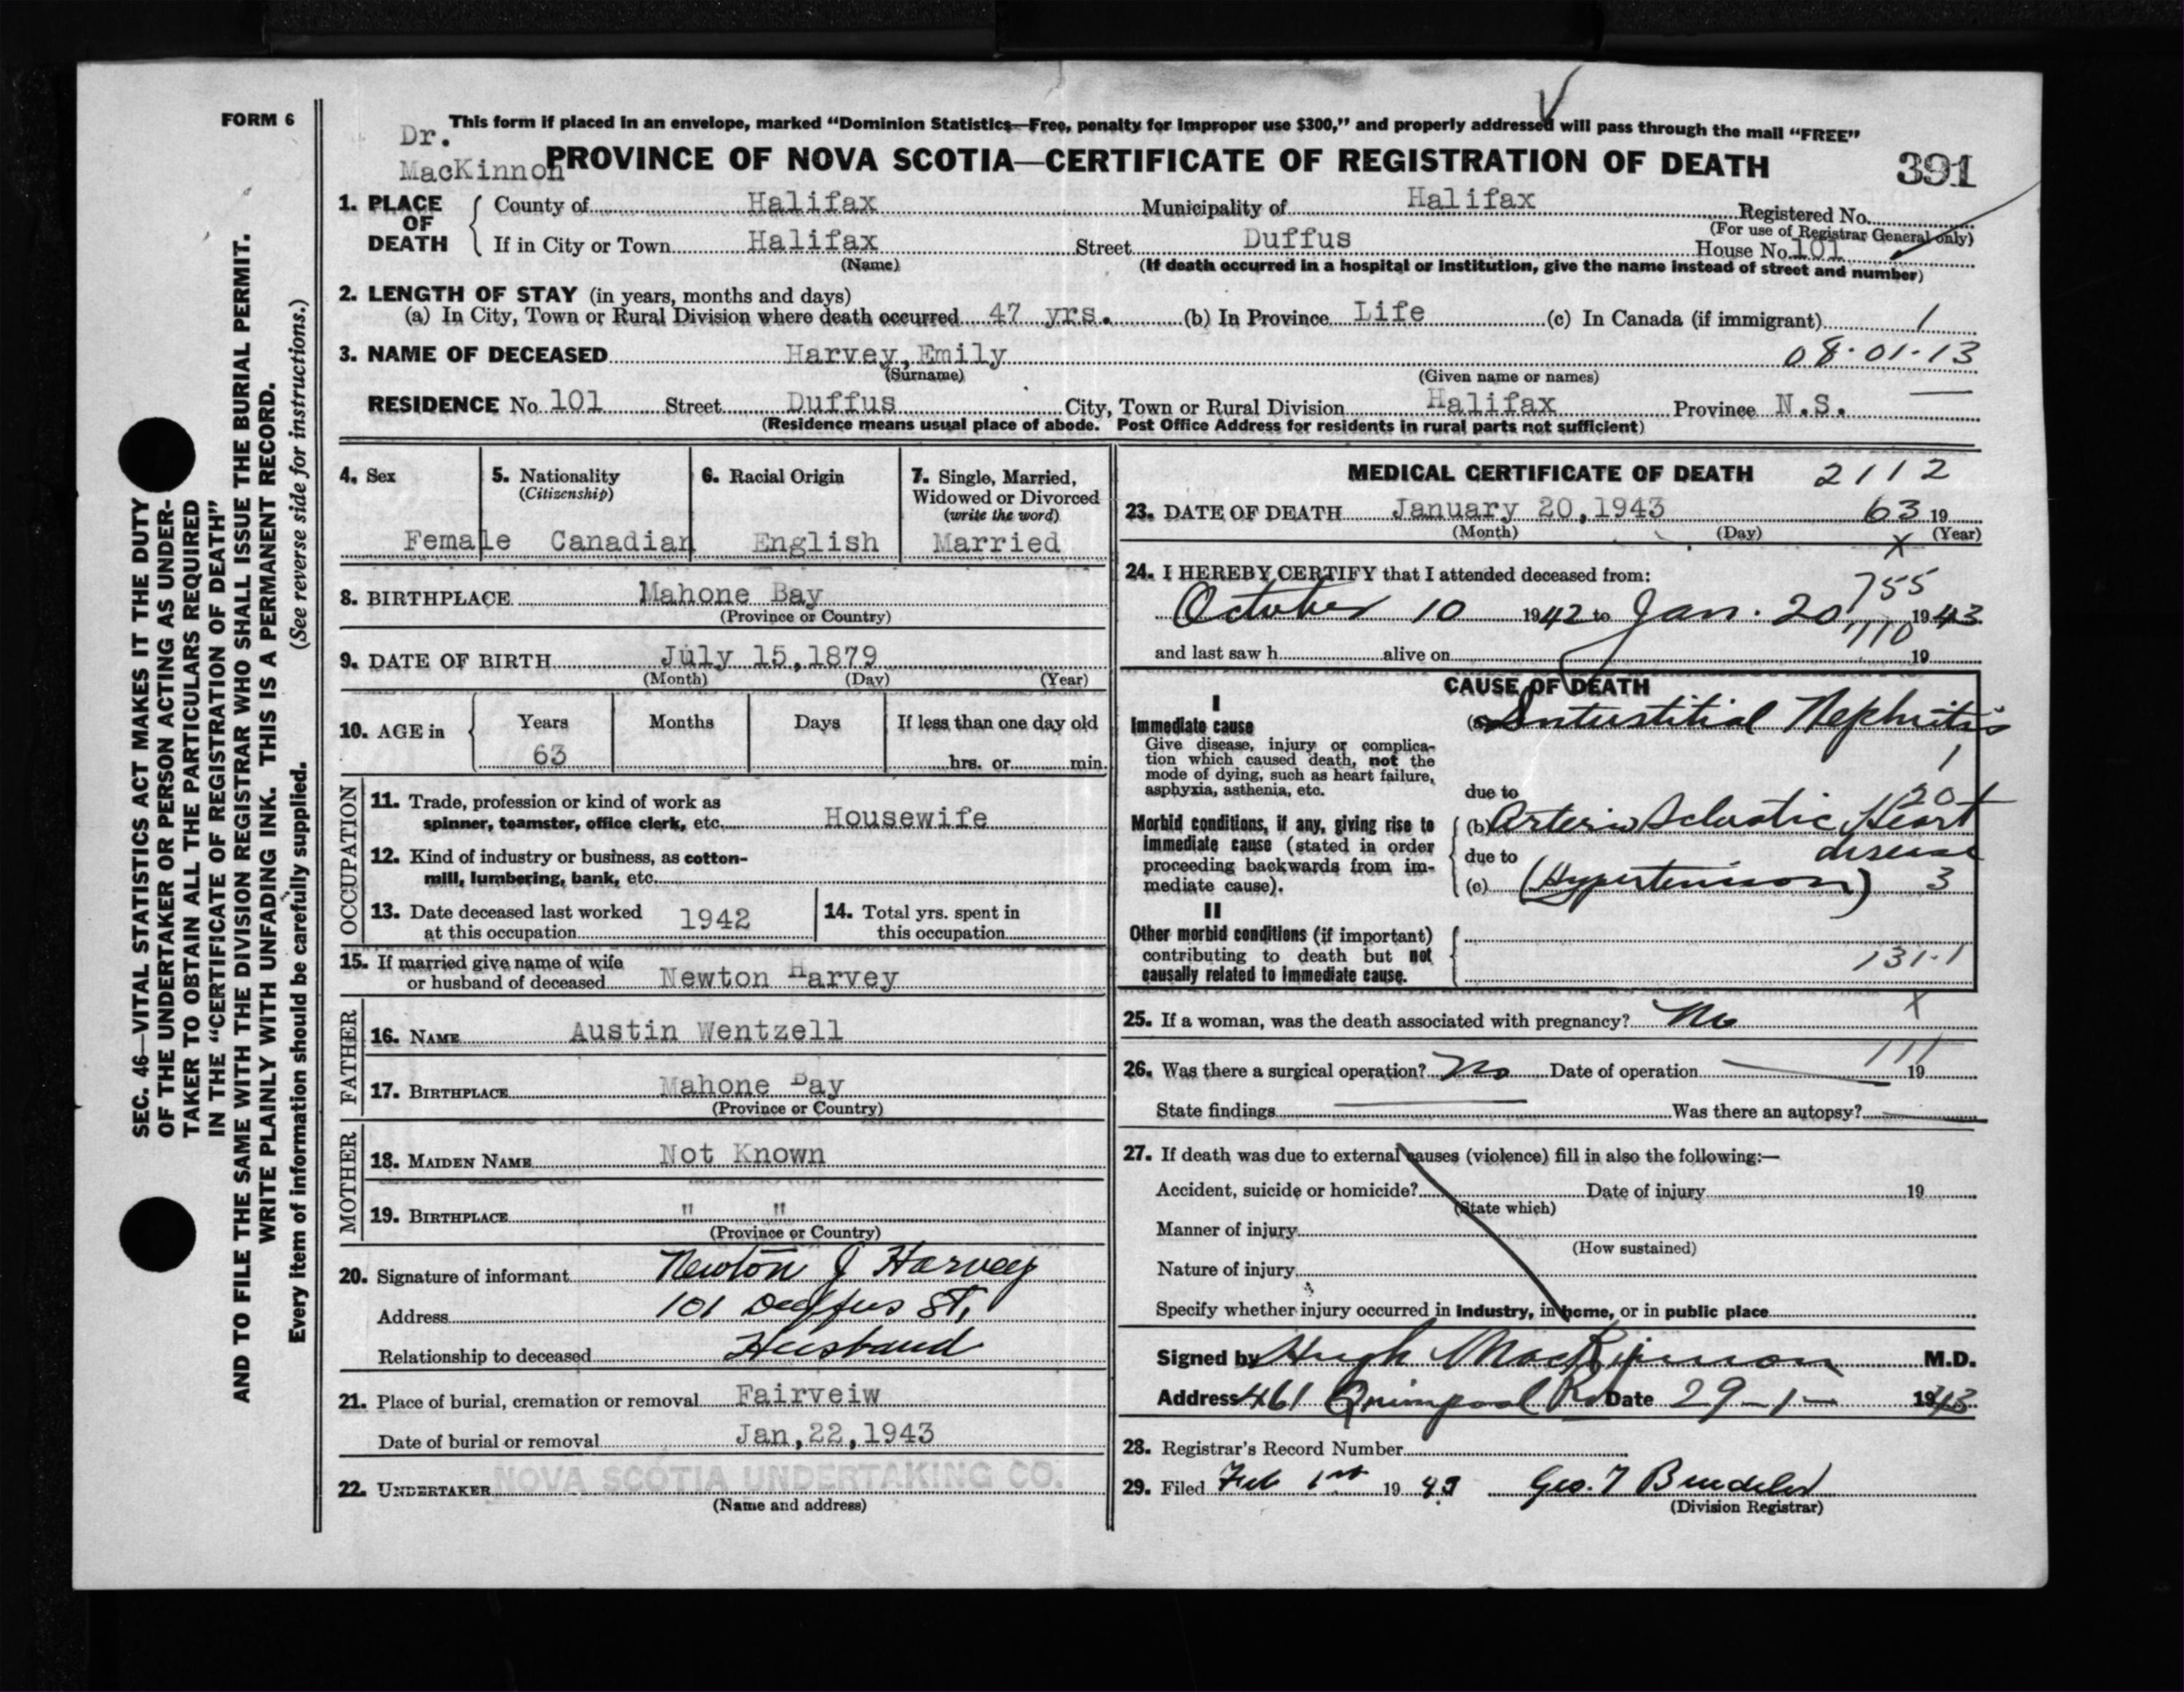 FORM 6
This form if placed in an envelope, marked “Dominion Statistics—Free, penalty for improper use $300,” and properly addressed will pass through the mail “FREE”
Dr.
MacKinnon
PROVINCE OF NOVA SCOTIA—CERTIFICATE OF REGISTRATION OF DEATH
391
1. PLACE OF DEATH
County of Halifax Municipality of Halifax Registered No.
(For use of Registrar General only)
If in City or Town Halifax Street Duffus House No. 101
(Name) (If death occurred in a hospital or institution, give the name instead of street and number)
2. LENGTH OF STAY (in years, months and days)
(a) In City, Town or Rural Division where death occurred 47 yrs. (b) In Province Life (c) In Canada (if immigrant) 1
3. NAME OF DECEASED Harvey, Emily 08·01·13
(Surname) (Given name or names)
RESIDENCE No. 101 Street Duffus City, Town or Rural Division Halifax Province N.S.
(Residence means usual place of abode. Post Office Address for residents in rural parts not sufficient)
4. Sex 5. Nationality (Citizenship) 6. Racial Origin 7. Single, Married, Widowed or Divorced (write the word)
Female Canadian English Married
8. BIRTHPLACE Mahone Bay
(Province or Country)
9. DATE OF BIRTH July 15, 1879
(Month) (Day) (Year)
10. AGE in Years Months Days If less than one day old
63 hrs. or min.
OCCUPATION
11. Trade, profession or kind of work as
spinner, teamster, office clerk, etc. Housewife
12. Kind of industry or business, as cotton-
mill, lumbering, bank, etc.
13. Date deceased last worked at this occupation 1942
14. Total yrs. spent in this occupation
15. If married give name of wife
or husband of deceased Newton Harvey
FATHER
16. NAME Austin Wentzell
17. BIRTHPLACE Mahone Bay
(Province or Country)
MOTHER
18. MAIDEN NAME Not Known
19. BIRTHPLACE " "
(Province or Country)
20. Signature of informant Newton J Harvey
Address 101 Duffus St,
Relationship to deceased Husband
21. Place of burial, cremation or removal Fairveiw
Date of burial or removal Jan, 22, 1943
22. UNDERTAKER NOVA SCOTIA UNDERTAKING CO.
(Name and address)
MEDICAL CERTIFICATE OF DEATH 2112
23. DATE OF DEATH January 20, 1943 63 19
(Month) (Day) (Year)
X
24. I HEREBY CERTIFY that I attended deceased from:
755
October 10 1942 to Jan. 20 1943
110
and last saw h alive on 19
CAUSE OF DEATH
I
Immediate cause
Give disease, injury or complica-
tion which caused death, not the
mode of dying, such as heart failure,
asphyxia, asthenia, etc.
(a) Interstitial Nephritis
1
due to
201
Morbid conditions, if any, giving rise to
immediate cause (stated in order
proceeding backwards from im-
mediate cause).
(b) Arterio Sclerotic Heart
due to disease
(c) (Hypertension) 3
II
Other morbid conditions (if important)
contributing to death but not
causally related to immediate cause.
131·1
X
25. If a woman, was the death associated with pregnancy? No
111
26. Was there a surgical operation? No Date of operation 19
State findings Was there an autopsy?
27. If death was due to external causes (violence) fill in also the following:—
Accident, suicide or homicide? Date of injury 19
(State which)
Manner of injury
(How sustained)
Nature of injury
Specify whether injury occurred in industry, in home, or in public place
Signed by Hugh MacKinnon M.D.
Address 461 Quinpool Rd Date 29-1- 1943
28. Registrar's Record Number
29. Filed Feb 1st 1943 Geo. T
(Division Registrar)
SEC. 46—VITAL STATISTICS ACT MAKES IT THE DUTY
OF THE UNDERTAKER OR PERSON ACTING AS UNDER-
TAKER TO OBTAIN ALL THE PARTICULARS REQUIRED
IN THE “CERTIFICATE OF REGISTRATION OF DEATH”
AND TO FILE THE SAME WITH THE DIVISION REGISTRAR WHO SHALL ISSUE THE BURIAL PERMIT.
WRITE PLAINLY WITH UNFADING INK. THIS IS A PERMANENT RECORD.
Every item of information should be carefully supplied. (See reverse side for instructions.)